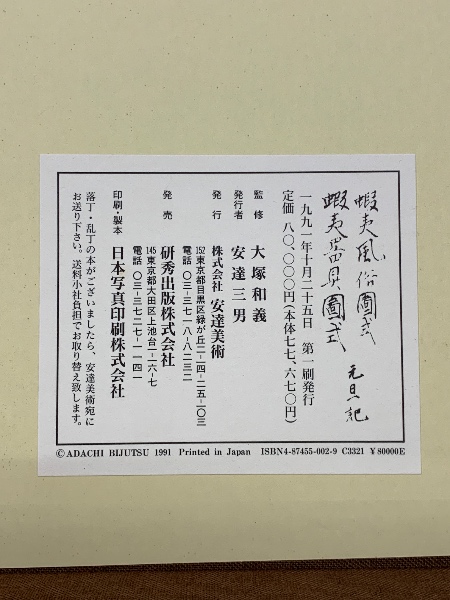 蝦夷風俗圖式
蝦夷器具圖式
元旦記
一九九一年十月二十五日　第一刷発行
定価 八〇、〇〇〇円(本体七七、六七〇円)
監修　大塚和義
発行者　安達三男
発行　株式会社 安達美術
152東京都目黒区緑が丘二-四-二五-二〇三
電話 〇三-三七一八-八二三一
発売　研秀出版株式会社
145東京都大田区上池台一-六-七
電話 〇三-三七二七-一一四一
印刷・製本　日本写真印刷株式会社
落丁・乱丁の本がございましたら、安達美術宛に
お送り下さい。送料小社負担でお取り替え致します。
©ADACHI BIJUTSU 1991 Printed in Japan ISBN4-87455-002-9 C3321 ¥80000E